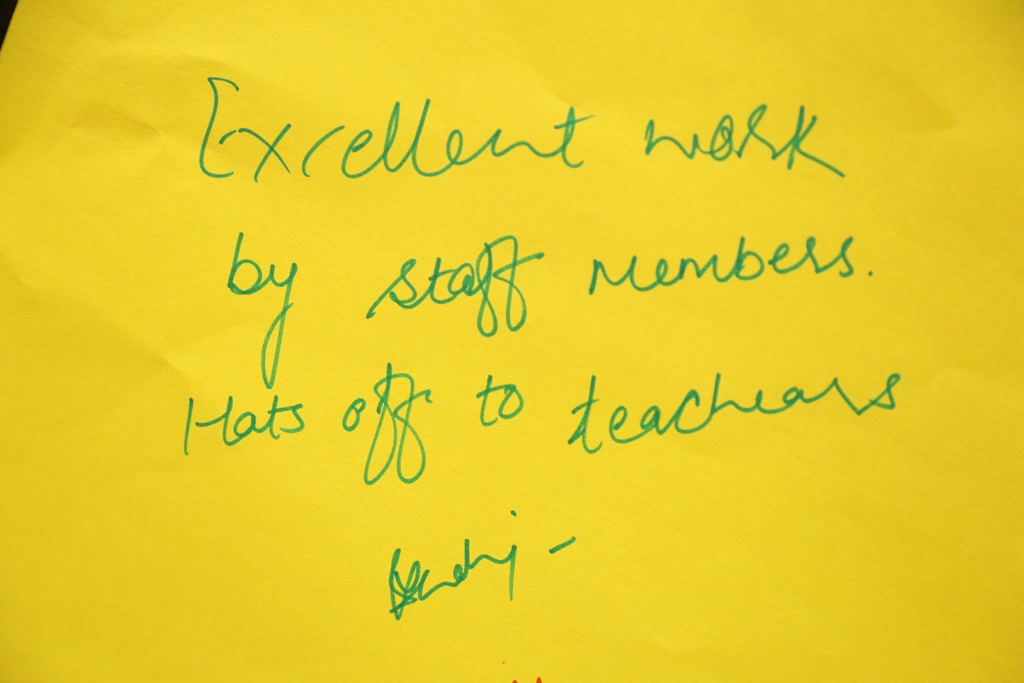 Excellent work
by staff members.
Hats off to teachears